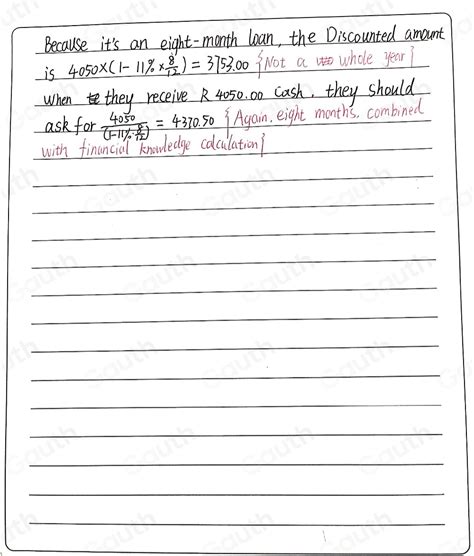 Because it's an eight-month loan, the Discounted amount
is 4050×(1-11%×8/12) = 3753.00 {Not a whole year}
when they receive R 4050.00 cash. they should
ask for 4050/(1-11%·8/12) = 4370.50 {Again, eight months. combined
with financial knowledge calculation}